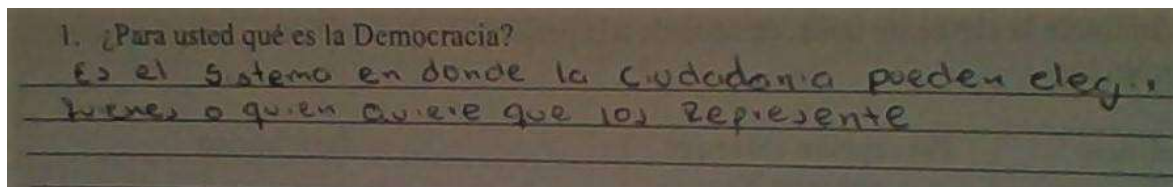 1. ¿Para usted qué es la Democracia?
Es el Sistema en donde la Ciudadania pueden elegir
quienes o quien Quiere que los Represente